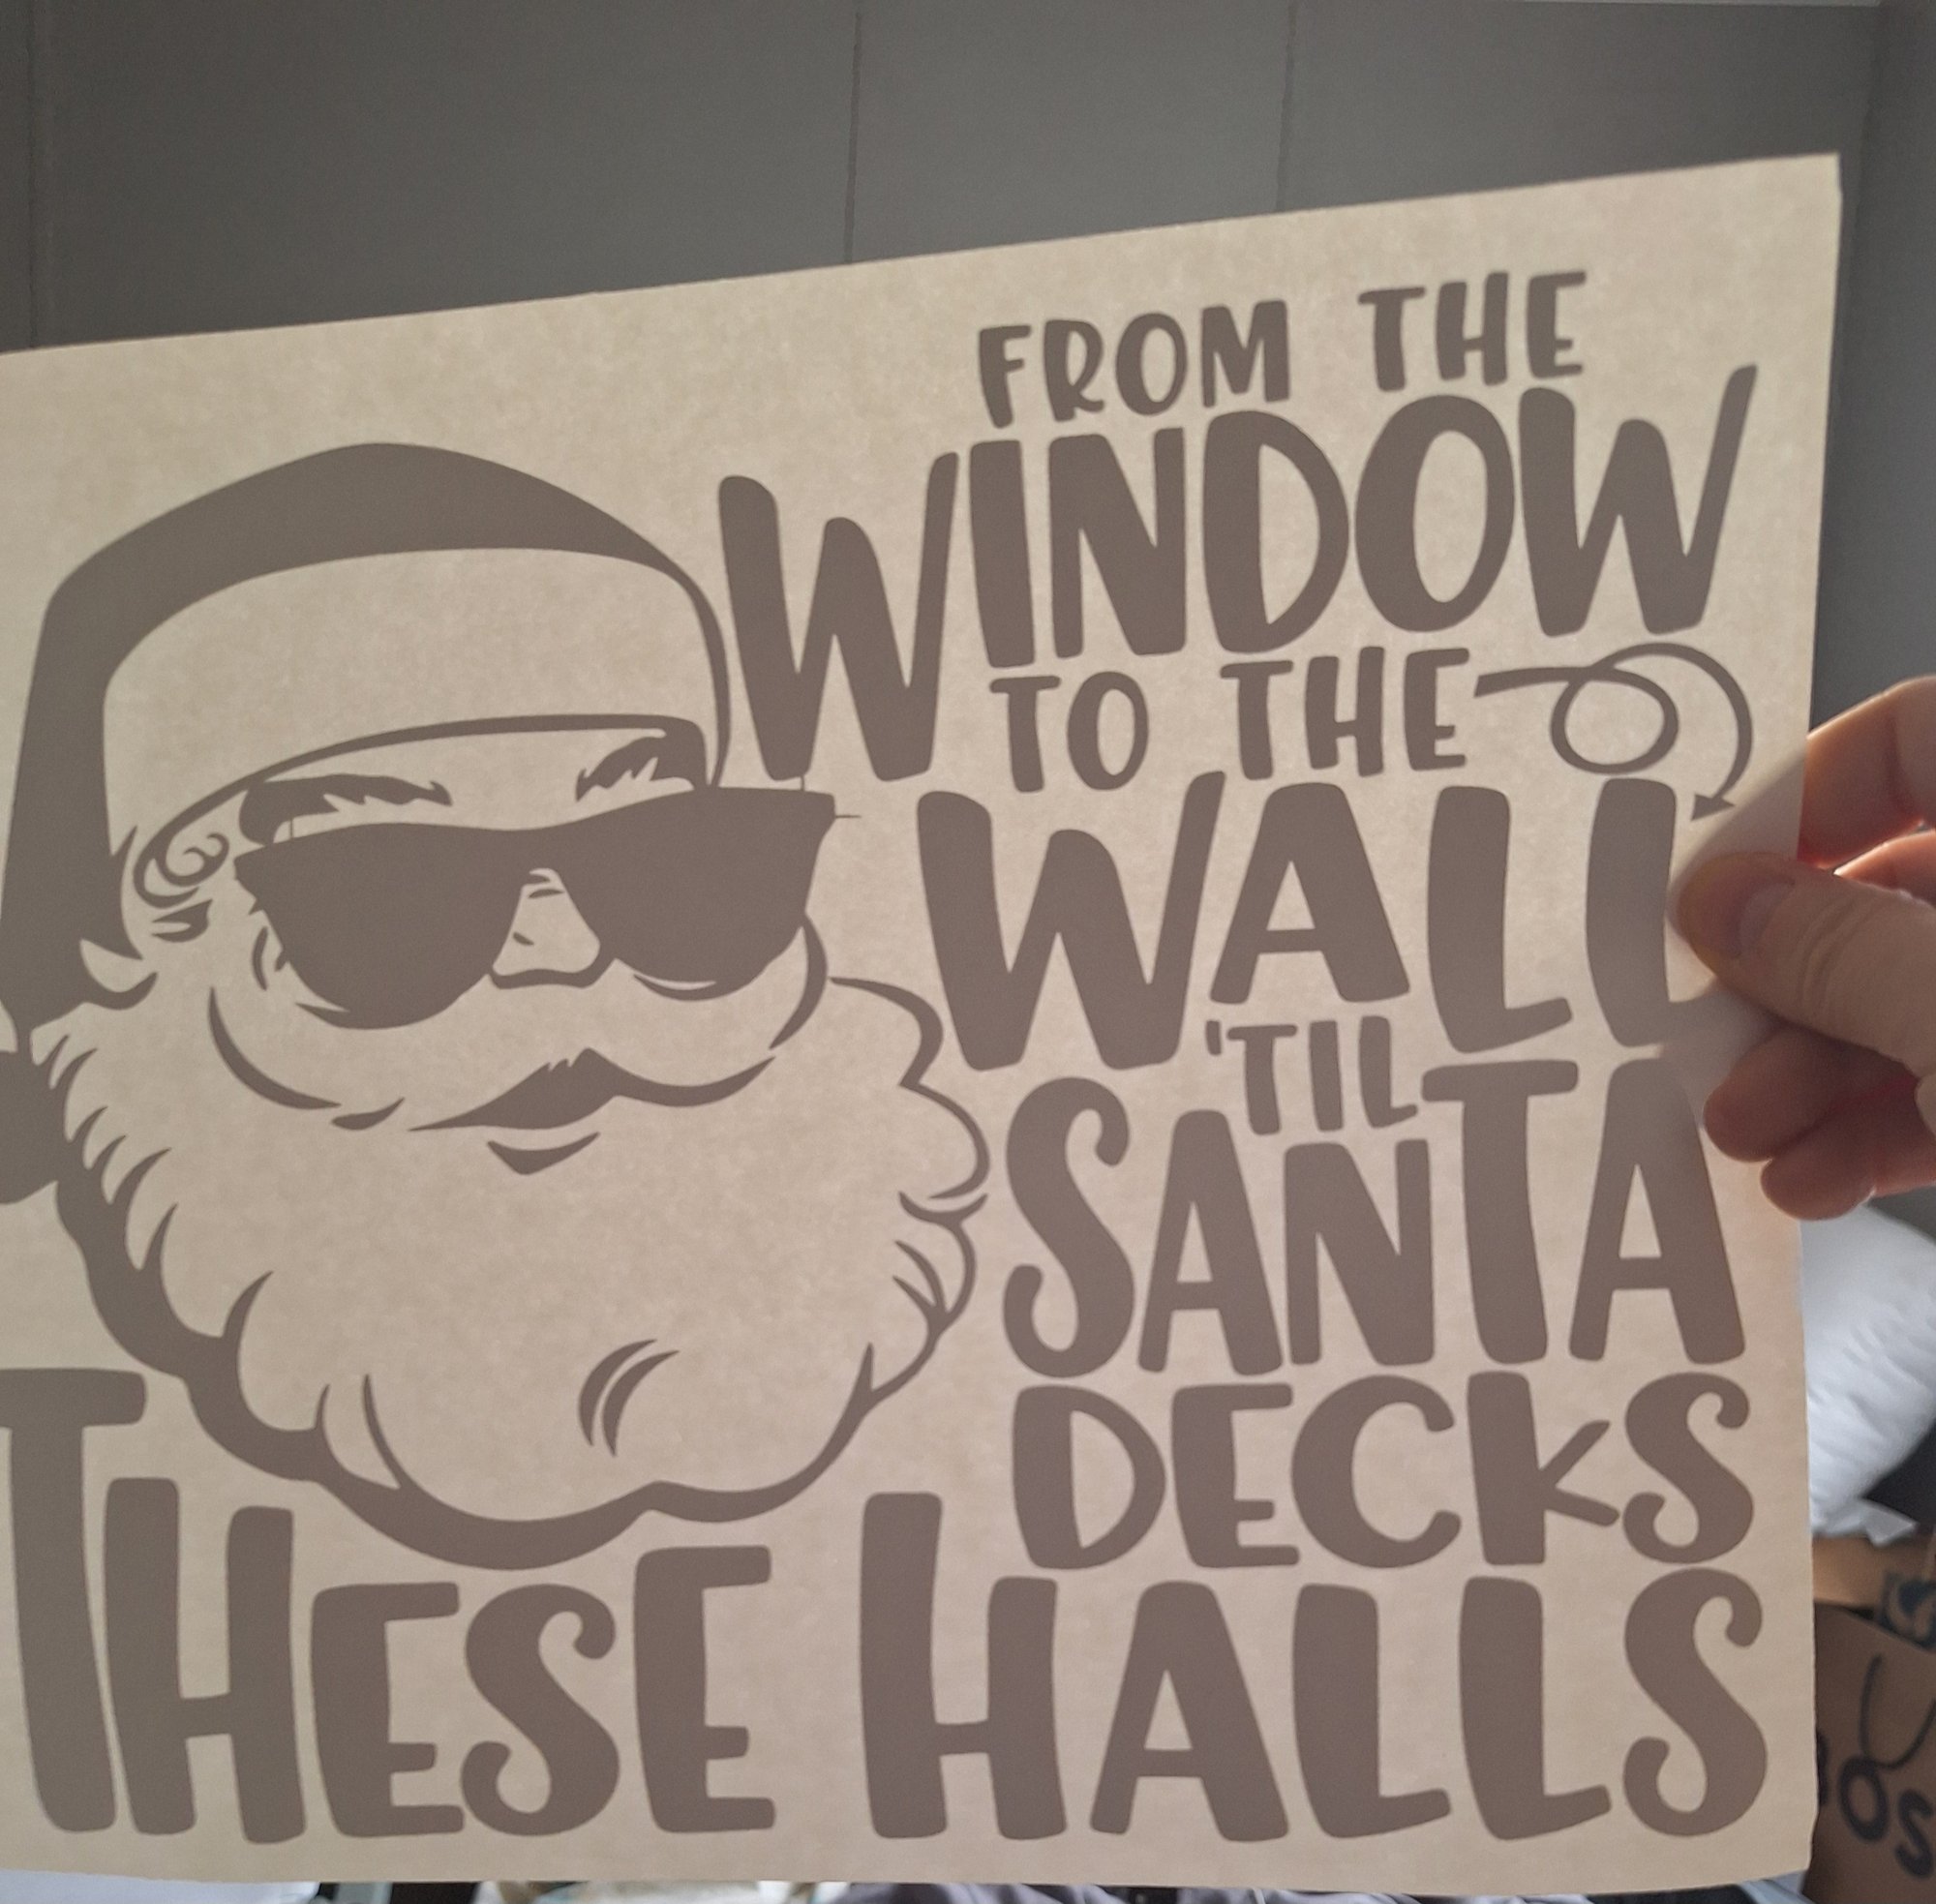 FROM THE
WINDOW
TO THE
WALL
'TIL
SANTA
DECKS
THESE HALLS